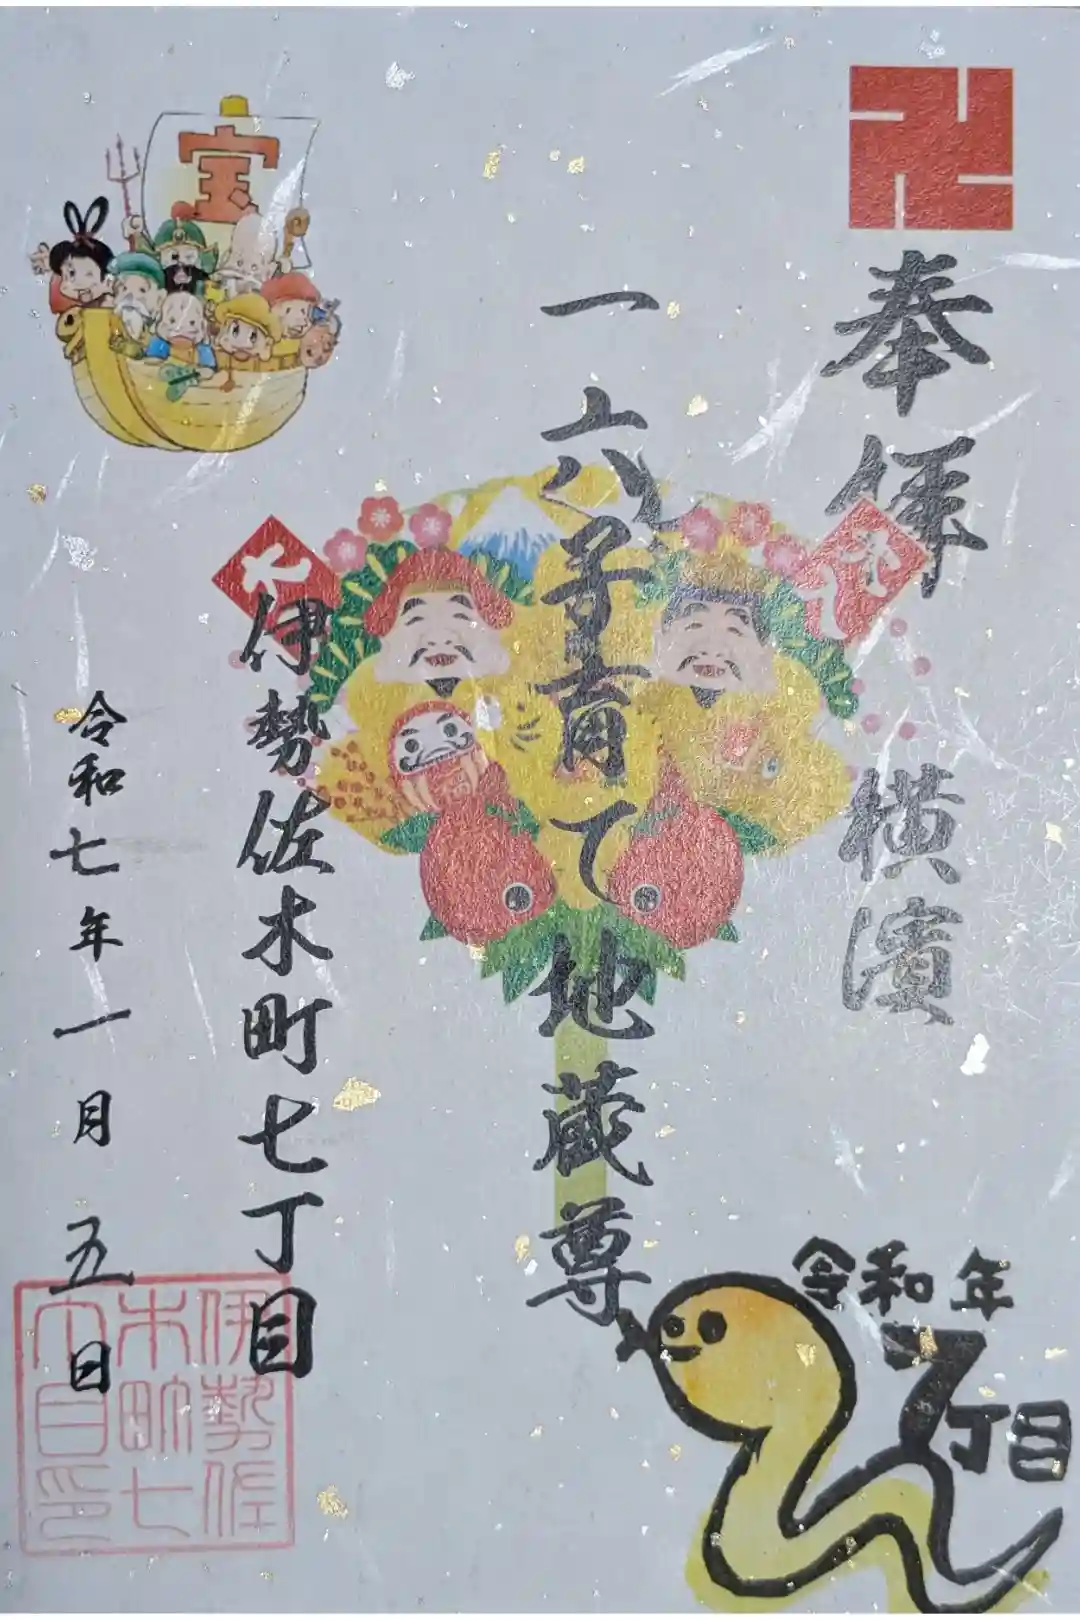 卍
奉拝 横濱
一六子育て地蔵尊
伊勢佐木町七丁目
令和七年一月五日
宝
伊勢佐
木町七
丁目印
令和7年
7丁目